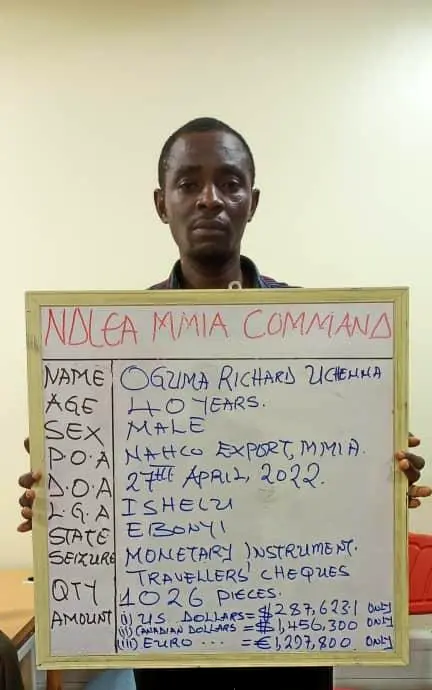 NDLEA MMIA COMMAND
NAME OGUMA RICHARD UCHENNA
AGE 40 YEARS.
SEX MALE
P.O.A NAHCO EXPORT, MMIA.
D.O.A 27TH APRIL, 2022.
L.G.A ISHELU
STATE EBONYI
SEIZURE MONETARY INSTRUMENT.
TRAVELLERS' CHEQUES
QTY 1026 PIECES.
AMOUNT (i) U.S. DOLLARS = $287,623.1 ONLY
(ii) CANADIAN DOLLARS = $1,456,300 ONLY
(iii) EURO ... = €1,297,800. ONLY